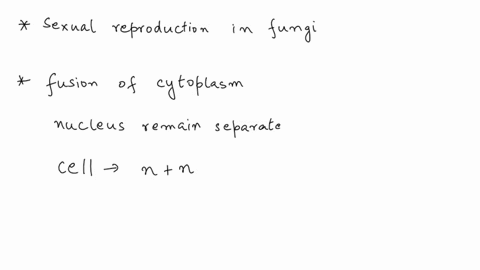 * Sexual reproduction in fungi
* fusion of cytoplasm
nucleus remain separate
cell → n + n